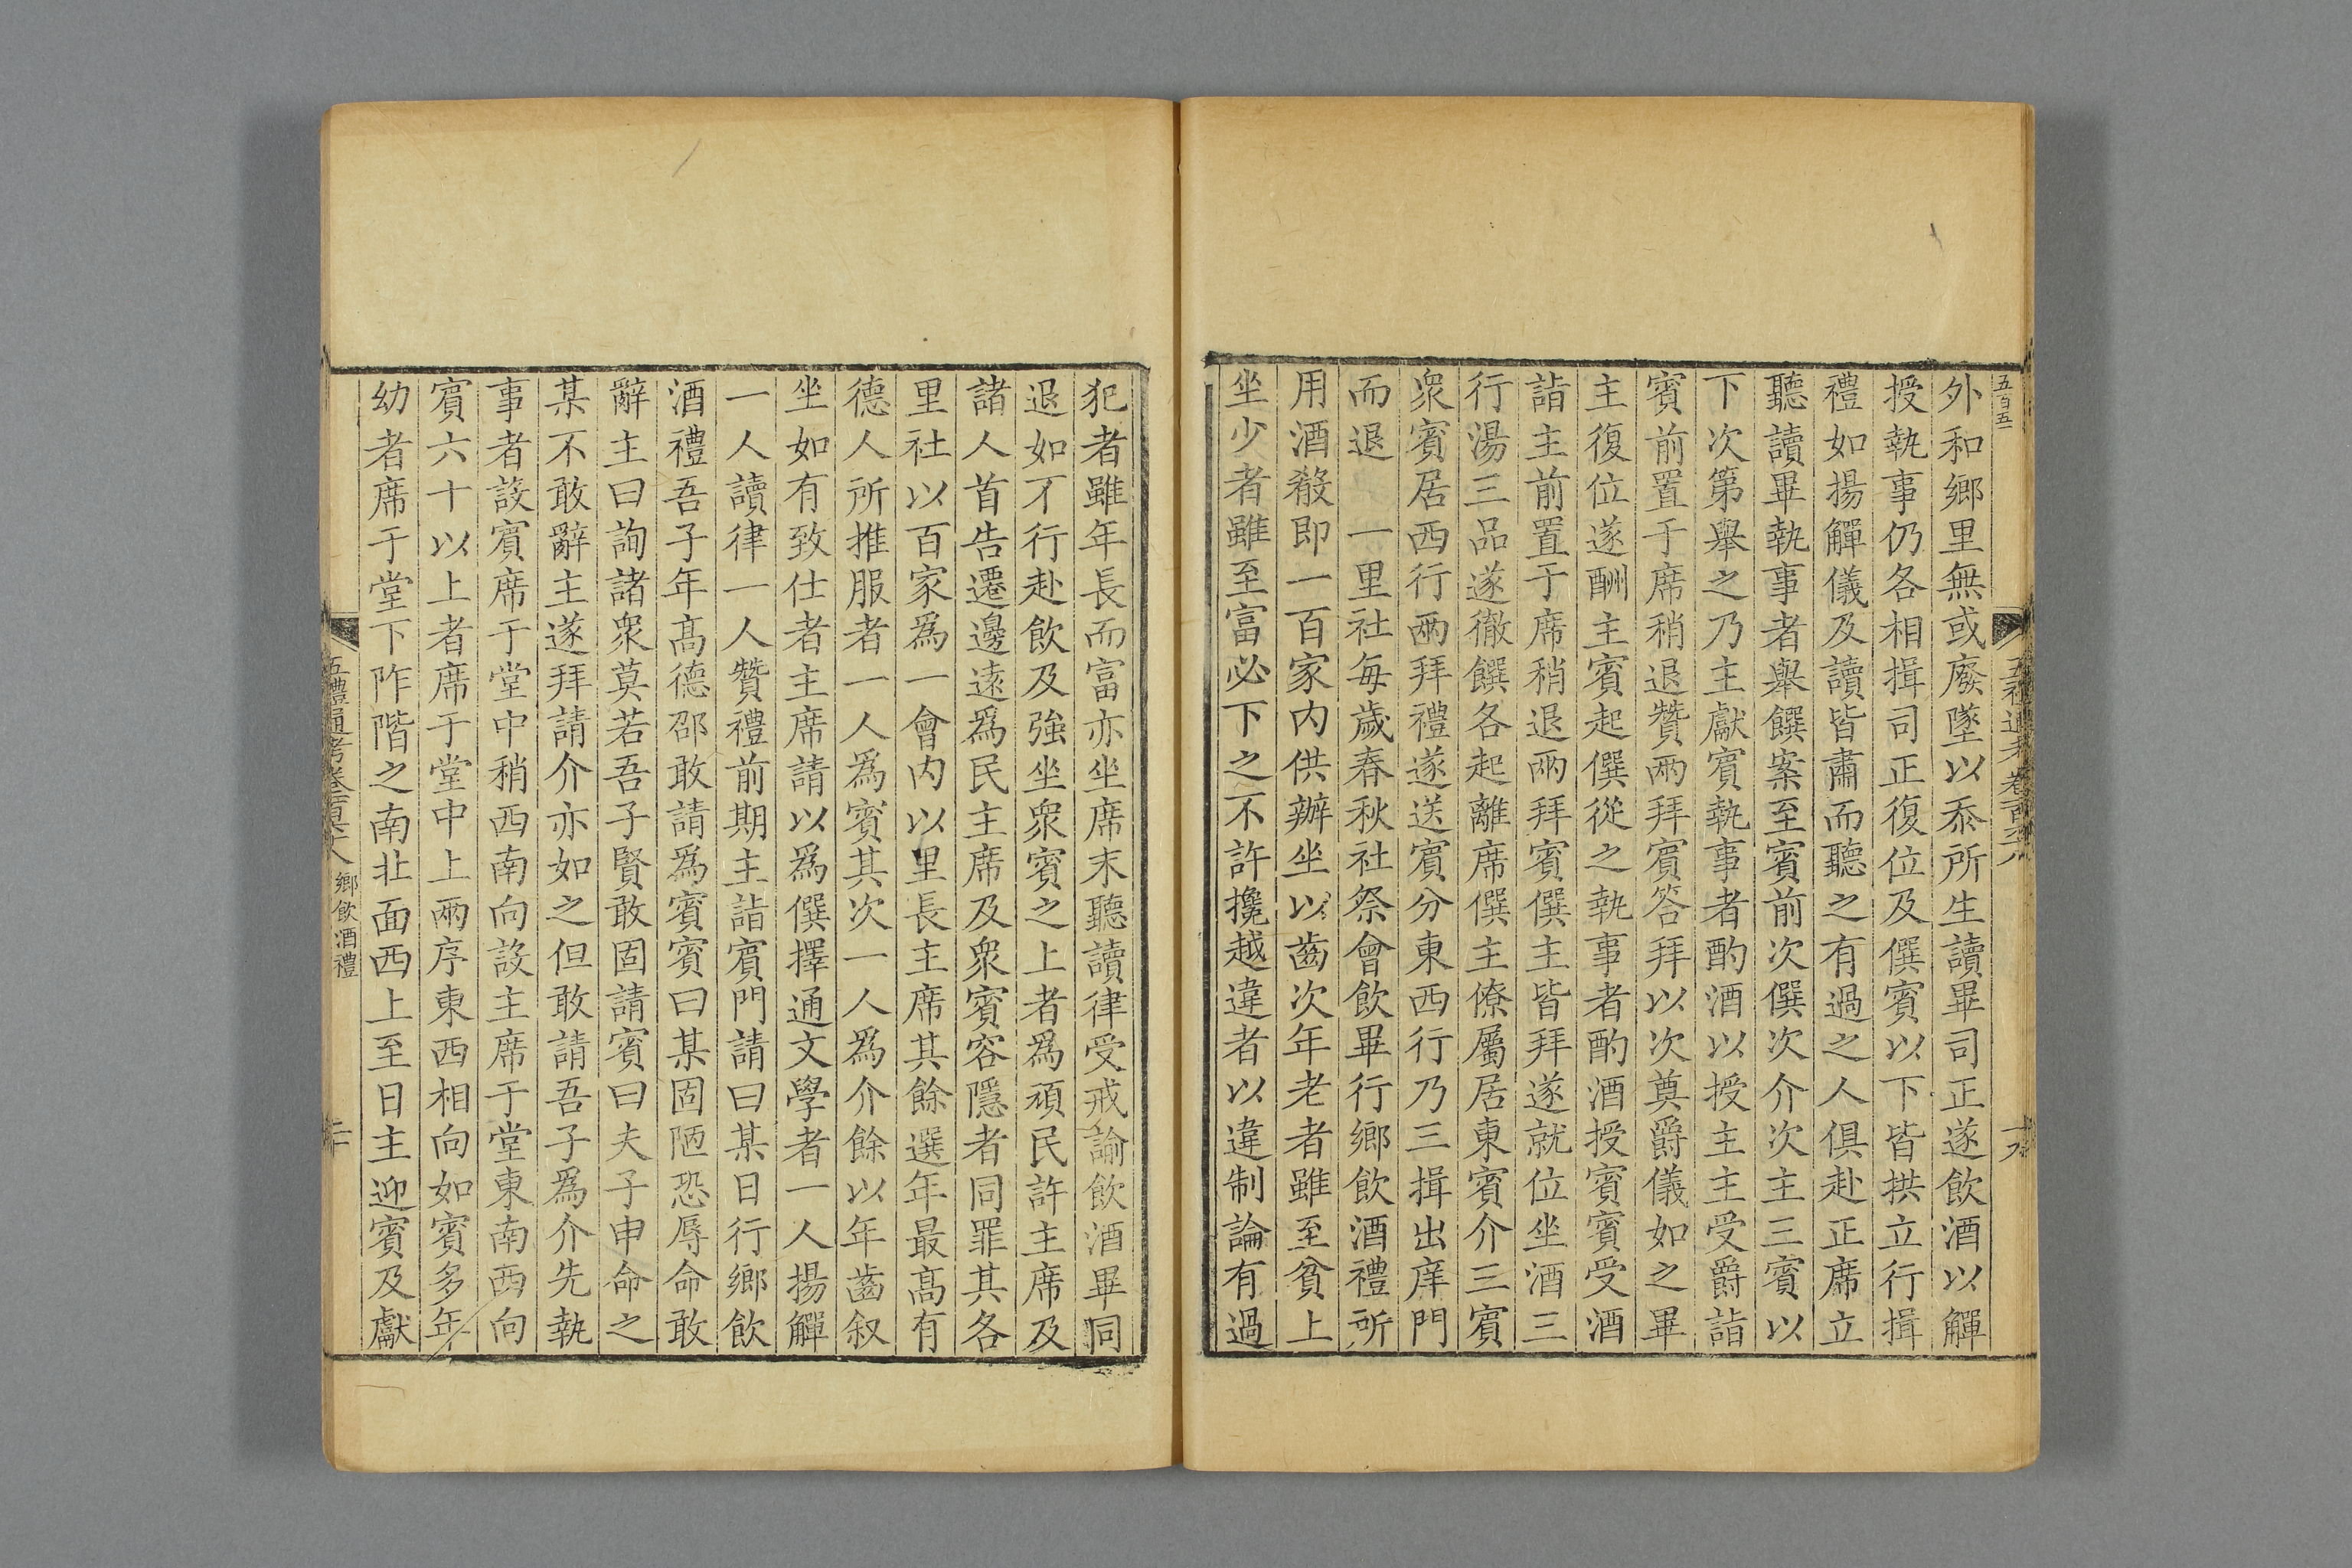 五百五
外和鄉里無或廢墜以忝所生讀畢司正遂飲酒以觶
授執事仍各相揖司正復位及僎賓以下皆拱立行揖
禮如揚觶儀及讀皆肅而聽之有過之人俱赴正席立
聽讀畢執事者舉饌案至賓前次僎次介次主三賓以
下次第舉之乃主獻賓執事者酌酒以授主主受爵詣
賓前置于席稍退贊兩拜賓答拜以次奠爵儀如之畢
主復位遂酬主賓起僎從之執事者酌酒授賓賓受酒
詣主前置于席稍退兩拜賓僎主皆拜遂就位坐酒三
行湯三品遂徹饌各起離席僎主僚屬居東賓介三賓
衆賓居西行兩拜禮遂送賓分東西行乃三揖出庠門
而退 一里社每歲春秋社祭會飲畢行鄉飲酒禮所
用酒殽即一百家内供辦坐以齒次年老者雖至貧上
坐少者雖至富必下之不許攙越違者以違制論有過
犯者雖年長而富亦坐席末聽讀律受戒諭飲酒畢同
退如不行赴飲及強坐衆賓之上者爲頑民許主席及
諸人首告遷邊遠爲民主席及衆賓容隱者同罪其各
里社以百家爲一會内以里長主席其餘選年最高有
德人所推服者一人爲賓其次一人爲介餘以年齒叙
坐如有致仕者主席請以爲僎擇通文學者一人揚觶
一人讀律一人贊禮前期主詣賓門請曰某日行鄉飲
酒禮吾子年高德邵敢請爲賓賓曰某固陋恐辱命敢
辭主曰詢諸衆莫若吾子賢敢固請賓曰夫子申命之
某不敢辭主遂拜請介亦如之但敢請吾子爲介先執
事者設賓席于堂中稍西南向設主席于堂東南西向
賓六十以上者席于堂中上兩序東西相向如賓多年
幼者席于堂下阼階之南北面西上至日主迎賓及獻
五禮通考卷一百六十八 鄉飲酒禮 二十